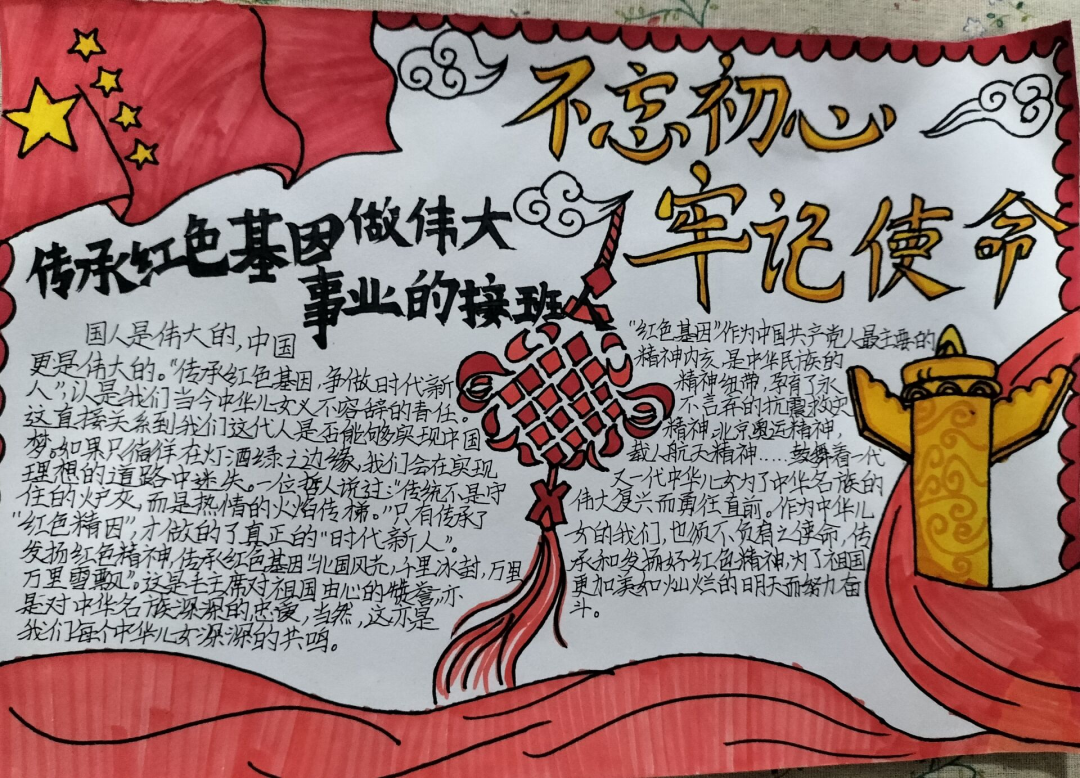 不忘初心
牢记使命
传承红色基因做伟大
事业的接班人
国人是伟大的,中国
更是伟大的。“传承红色基因,争做时代新
人”,认是我们当今中华儿女义不容辞的责任。
这直接关系到我们这代人是否能够实现中国
梦。如果只徜徉在灯酒绿之边缘,我们会在实现
理想的道路中迷失。一位哲人说过:“传统不是守
住的炉灰,而是热情的火焰传梯。”只有传承了
“红色精因”,才做的了真正的“时代新人”。
发扬红色精神,传承红色基因“北国风光,千里冰封,万里
万里雪飘”。这是毛主席对祖国由心的赞誉”亦
是对中华名族深深的忠爱,当然,这亦是
我们每个中华儿女深深的共鸣。
“红色基因”作为中国共产党人最主要的
精神内亥,是中华民族的
精神纽带,享有了永
不言弃的抗震救灾
精神,北京奥运精神,
载人航天精神……鼓舞着一代
又一代中华儿女为了中华名族的
伟大复兴而勇往直前。作为中华儿
女的我们,也须不负肩之使命,传
承和发扬好红色精神,为了祖国
更加美和灿烂的明天而努力奋
斗。